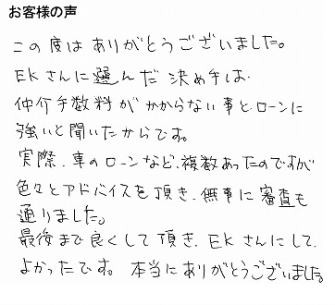 お客様の声
この度はありがとうございました。
EKさんに選んだ決め手は、
仲介手数料がかからない事と、ローンに
強いと聞いたからです。
実際、車のローンなど、複数あったのですが
色々とアドバイスを頂き、無事に審査も
通りました。
最後まで良くして頂き、EKさんにして、
よかったです。本当にありがとうございました。